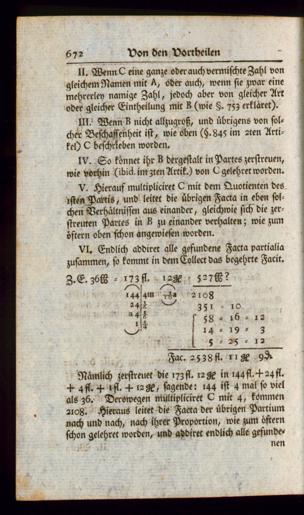 672 Von den Vortheilen
II. Wenn C eine ganze oder auch vermischte Zahl von
gleichem Namen mit A, oder auch, wenn sie zwar eine
mehrerley namige Zahl, jedoch aber von gleicher Art
oder gleicher Eintheilung mit B (wie §. 753 erkläret).
III. Wenn B nicht allzugroß, und übrigens von sol-
cher Beschaffenheit ist, wie oben (§. 845 im 2ten Arti-
kel) C beschrieben worden.
IV. So könnet ihr B dergestalt in Partes zerstreuen,
wie vorhin (ibid. im 3ten Artik.) von C gelehret worden.
V. Hierauf multipliciret C mit dem Quotienten des
1sten Partis, und leitet die übrigen Facta in eben sol-
chen Verhältnissen aus einander, gleichwie sich die zer-
streueten Partes in B zu einander verhalten; wie zum
öftern oben schon angewiesen worden.
VI. Endlich addiret alle gefundene Facta partialia
zusammen, so kommt in dem Collect das begehrte Facit.
Z. E. 36 = 173 fl. 12 527 ?
144 4m 2108
24 351 - 10
4 58 - 16 - 12
1 14 - 19 - 3
5 - 25 - 12
Fac. 2538 fl. 11 9
Nämlich zerstreuet die 173 fl. 12 in 144 fl. + 24 fl.
+ 4 fl. + 1 fl. + 12 , sagende: 144 ist 4 mal so viel
als 36. Derowegen multipliciret C mit 4, kommen
2108. Hieraus leitet die Facta der übrigen Partium
nach und nach, nach ihrer Proportion, wie zum öftern
schon gelehret worden, und addiret endlich alle gefunde-
nen